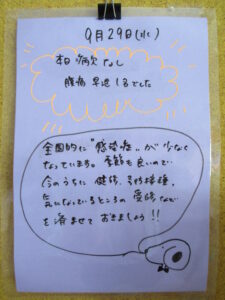 9月29日(水)
本日 病欠 なし
腹痛 早退 1名でした
全国的に "感染症" が 少なく
なっています。季節も良いので
今のうちに 健診、予防接種、
気になっているところの 受診 など
を 済ませて おきましょう!!